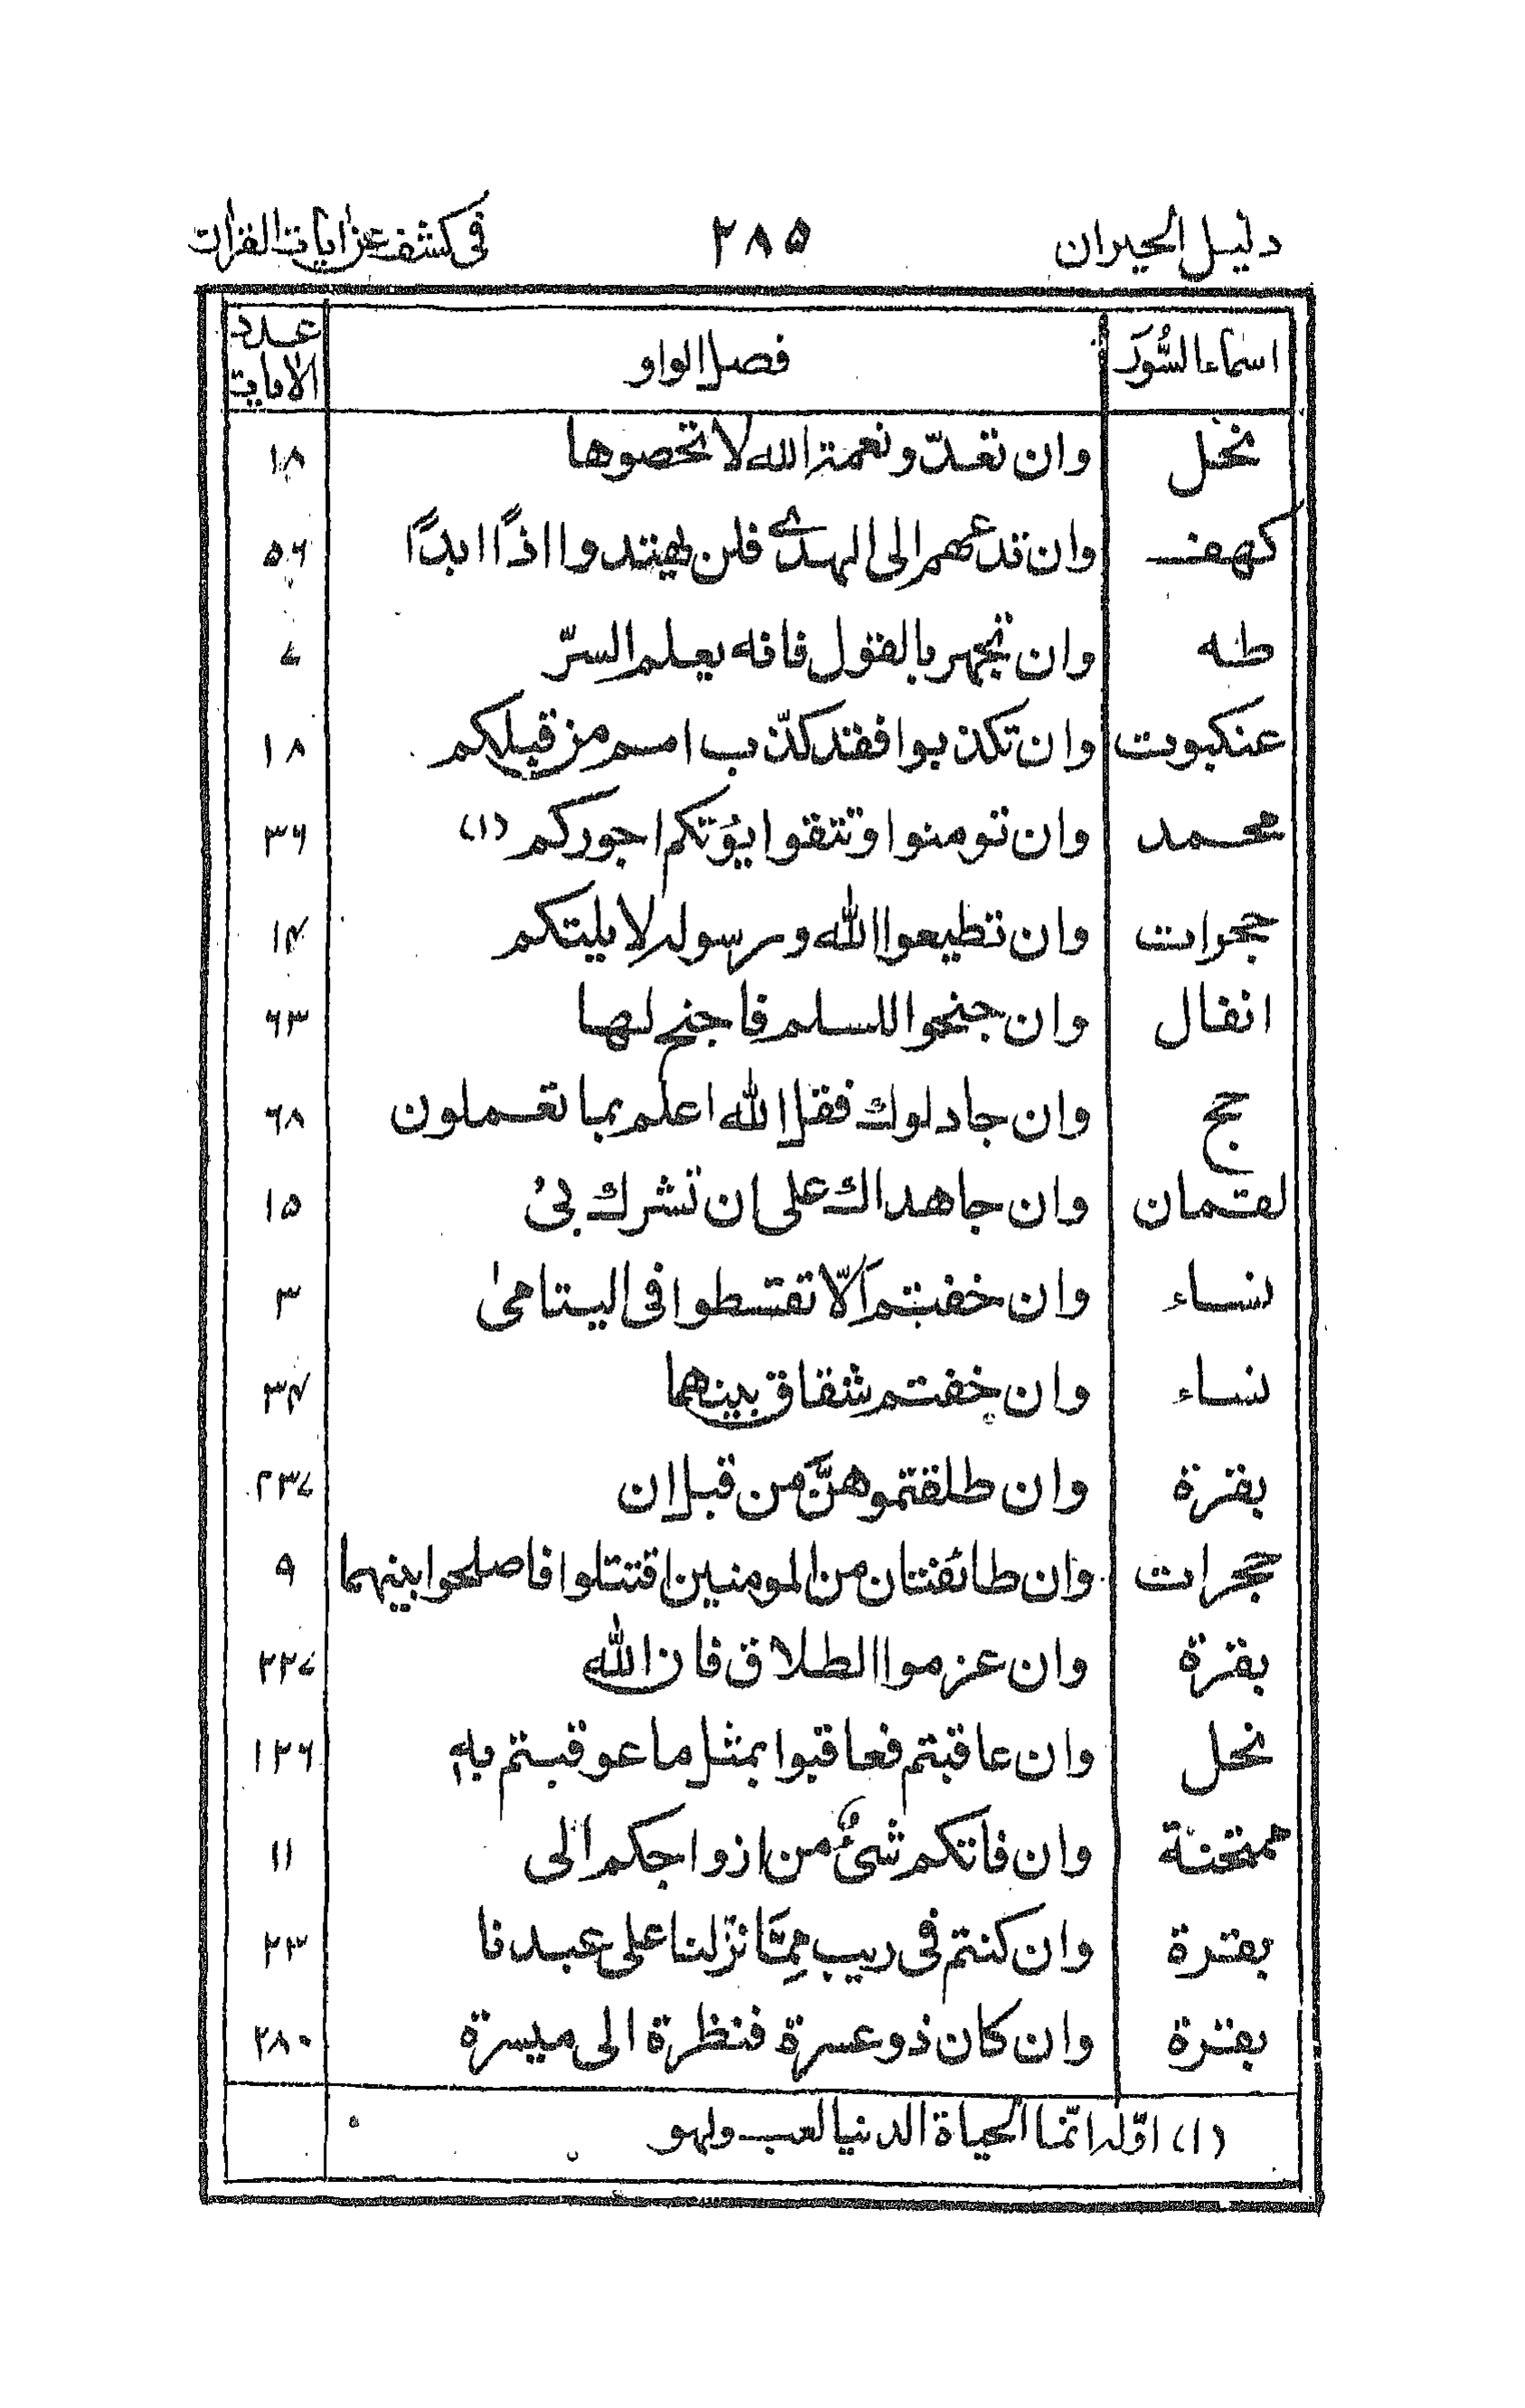 دليل الحيران ۲۸۵ فى كشف عن ايات القران
اسماء السُّوَر فصل الواو عدد الايات
نحل وان تعدّ ونعمة الله لا تحصوها ۱۸
كهف وان تدعهم الى الهدى فلن يهتدوا اذًا ابدًا ۵۶
طه وان تجهر بالقول فانه يعلم السرّ ۷
عنكبوت وان تكذبوا فقد كذّب امم من قبلكم ۱۸
محمد وان تومنوا وتتقوا يؤتكم اجوركم (۱) ۳۶
حجرات وان تطيعوا الله ورسوله لا يلتكم ۱۴
انفال وان جنحوا للسلم فاجنح لها ۶۳
حج وان جادلوك فقل الله اعلم بما تعملون ۶۸
لقمان وان جاهداك على ان تشرك بى ۱۵
نساء وان خفتم اَلّا تقسطوا فى اليتامىٰ ۳
نساء وان خفتم شقاق بينهما ۳۴
بقرة وان طلقتموهنَّ من قبل ان ۲۳۷
حجرات وان طائفتان من المومنين اقتتلوا فاصلحوا بينهما ۹
بقرة وان عزموا الطلاق فان الله ۲۲۷
نحل وان عاقبتم فعاقبوا بمثل ما عوقبتم به ۱۲۶
ممتحنة وان فاتكم شىءٌ من ازواجكم الى ۱۱
بقرة وان كنتم فى ريب مِمَّا نزّلنا على عبدنا ۲۳
بقرة وان كان ذو عسرة فنظرة الى ميسرة ۲۸۰
(۱) اوّله انّما الحياة الدنيا لعب ولهو